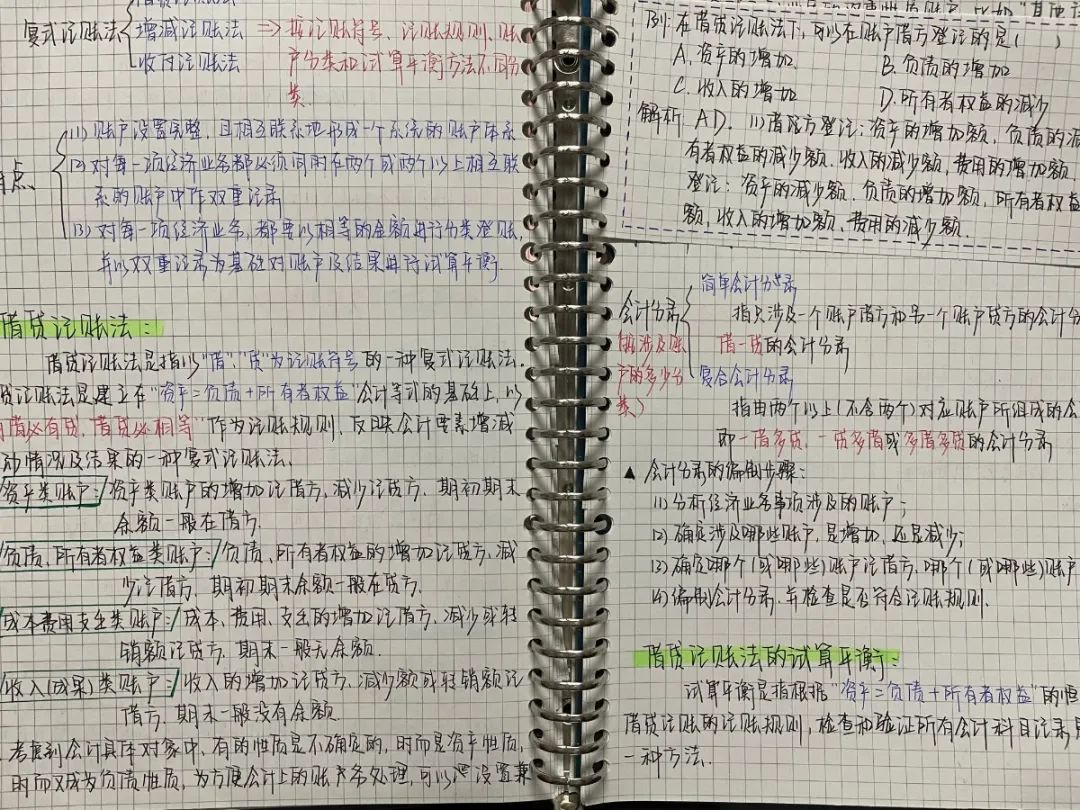 复式记账法
增减记账法 ⇒ 按记账符号、记账规则、账
收付记账法 户分类和试算平衡方法不同分
类.
点
(1) 账户设置完整,且相互联系地形成一个系统的账户体系
(2) 对每一项经济业务都必须同时在两个或两个以上相互联
系的账户中作双重记录
(3) 对每一项经济业务,都要以相等的金额进行分类登账,
并以双重记录为基础对账户及结果进行试算平衡.
借贷记账法:
借贷记账法是指以"借"、"贷"为记账符号的一种复式记账法.
贷记账法是建立在"资产=负债+所有者权益"会计等式的基础上,以
有借必有贷,借贷必相等"作为记账规则,反映会计要素增减
动情况及结果的一种复式记账法.
资产类账户:资产类账户的增加记借方,减少记贷方.期初期末
余额一般在借方.
负债、所有者权益类账户:负债、所有者权益的增加记贷方,减
少记借方.期初期末余额一般在贷方.
成本费用支出类账户:成本、费用、支出的增加记借方,减少或转
销额记贷方.期末一般无余额.
收入(成果)类账户:收入的增加记贷方,减少额或转销额记
借方,期末一般没有余额.
考虑到会计具体对象中,有的性质是不确定的,时而是资产性质,
时而又成为负债性质,为方便会计上的账户务处理,可以设置兼
例:在借贷记账法下,可以在账户借方登记的是( )
A.资产的增加. B.负债的增加
C.收入的增加 D.所有者权益的减少
解析 AD. (1)借方登记:资产的增加额,负债的减
有者权益的减少额.收入的减少额,费用的增加额.
登记:资产的减少额.负债的增加额,所有者权益
额,收入的增加额、费用的减少额.
简单会计分录
会计分录 指只涉及一个账户借方和另一个账户贷方的会计分
按涉及账 借一贷的会计分录
户的多少分 复合会计分录
类) 指由两个以上(不含两个)对应账户所组成的会
即一借多贷、一贷多借或多借多贷的会计分录
▲ 会计分录的编制步骤:
(1)分析经济业务事项涉及的账户;
(2)确定涉及哪些账户,是增加,还是减少;
(3)确定哪个(或哪些)账户记借方,哪个(或哪些)账户
(4)编制会计分录,并检查是否符合记账规则.
借贷记账法的试算平衡:
试算平衡是指根据"资产=负债+所有者权益"的恒
借贷记账的记账规则,检查和验证所有会计科目记录是
一种方法.